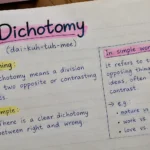 Dichotomy
(dai-kuh-tuh-mee)
ing:
chotomy means a division
two opposite or contrasting
ts.
mple:
here is a clear dichotomy
between right and wrong.
In simple wor
It refers to t
opposing thing
ideas, often
contrast
→ e.g
nature vs
work vs
love vs